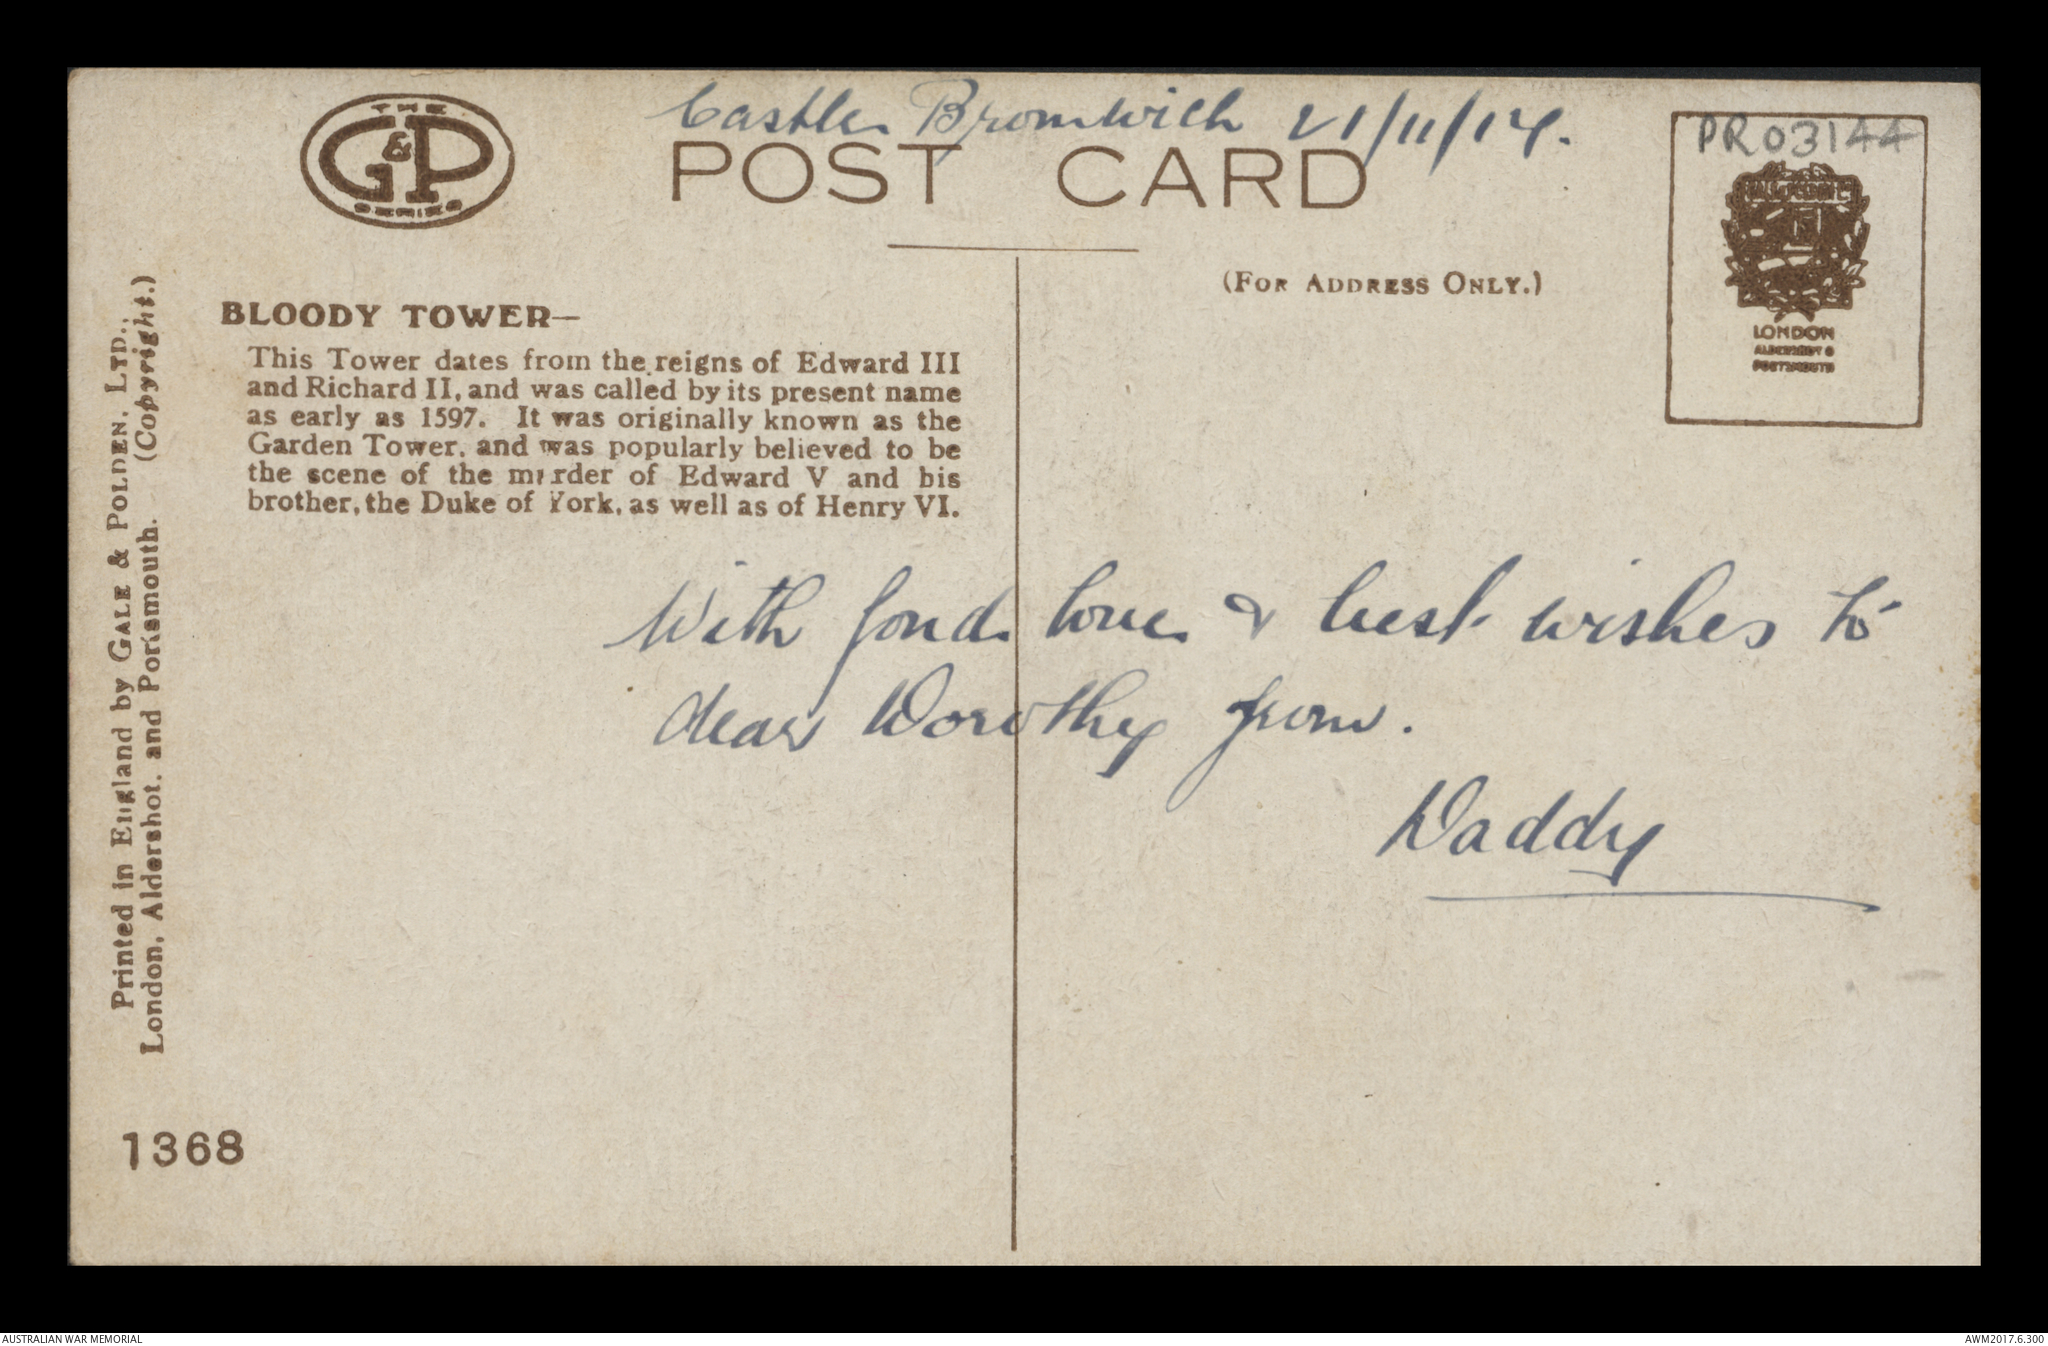 Castle Bromwich 21/11/17.
THE
G&P
SERIES
POST CARD
PR03144
GALE & POLDEN LTD
LONDON
ALDERSHOT &
PORTSMOUTH
(FOR ADDRESS ONLY.)
BLOODY TOWER—
This Tower dates from the reigns of Edward III
and Richard II, and was called by its present name
as early as 1597. It was originally known as the
Garden Tower, and was popularly believed to be
the scene of the murder of Edward V and his
brother, the Duke of York, as well as of Henry VI.
With fond love & best wishes to
dear Dorothy from.
Daddy
Printed in England by GALE & POLDEN, LTD.,
London, Aldershot, and Portsmouth. (Copyright.)
1368
AUSTRALIAN WAR MEMORIAL
AWM2017.6.300